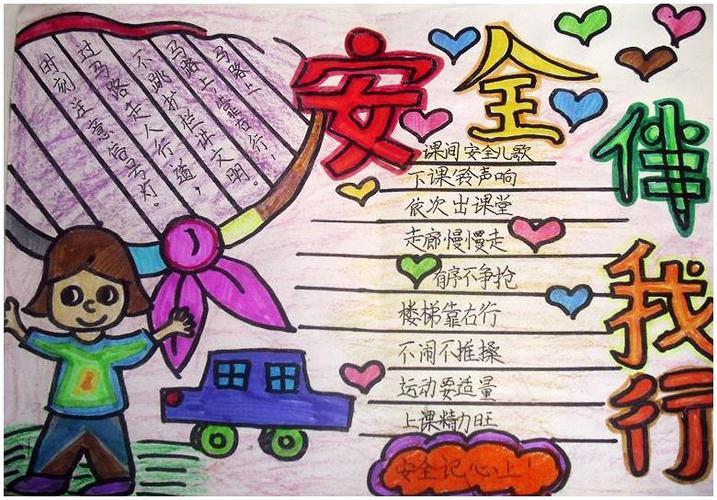 安全伴我行
马路上,靠右行,
马路上,
不跳护栏讲文明。
过马路走人行道,
时刻注意信号灯。
课间安全儿歌
下课铃声响
依次出课堂
走廊慢慢走
有序不争抢
楼梯靠右行
不闹不推搡
运动要适量
上课精力旺
安全记心上!